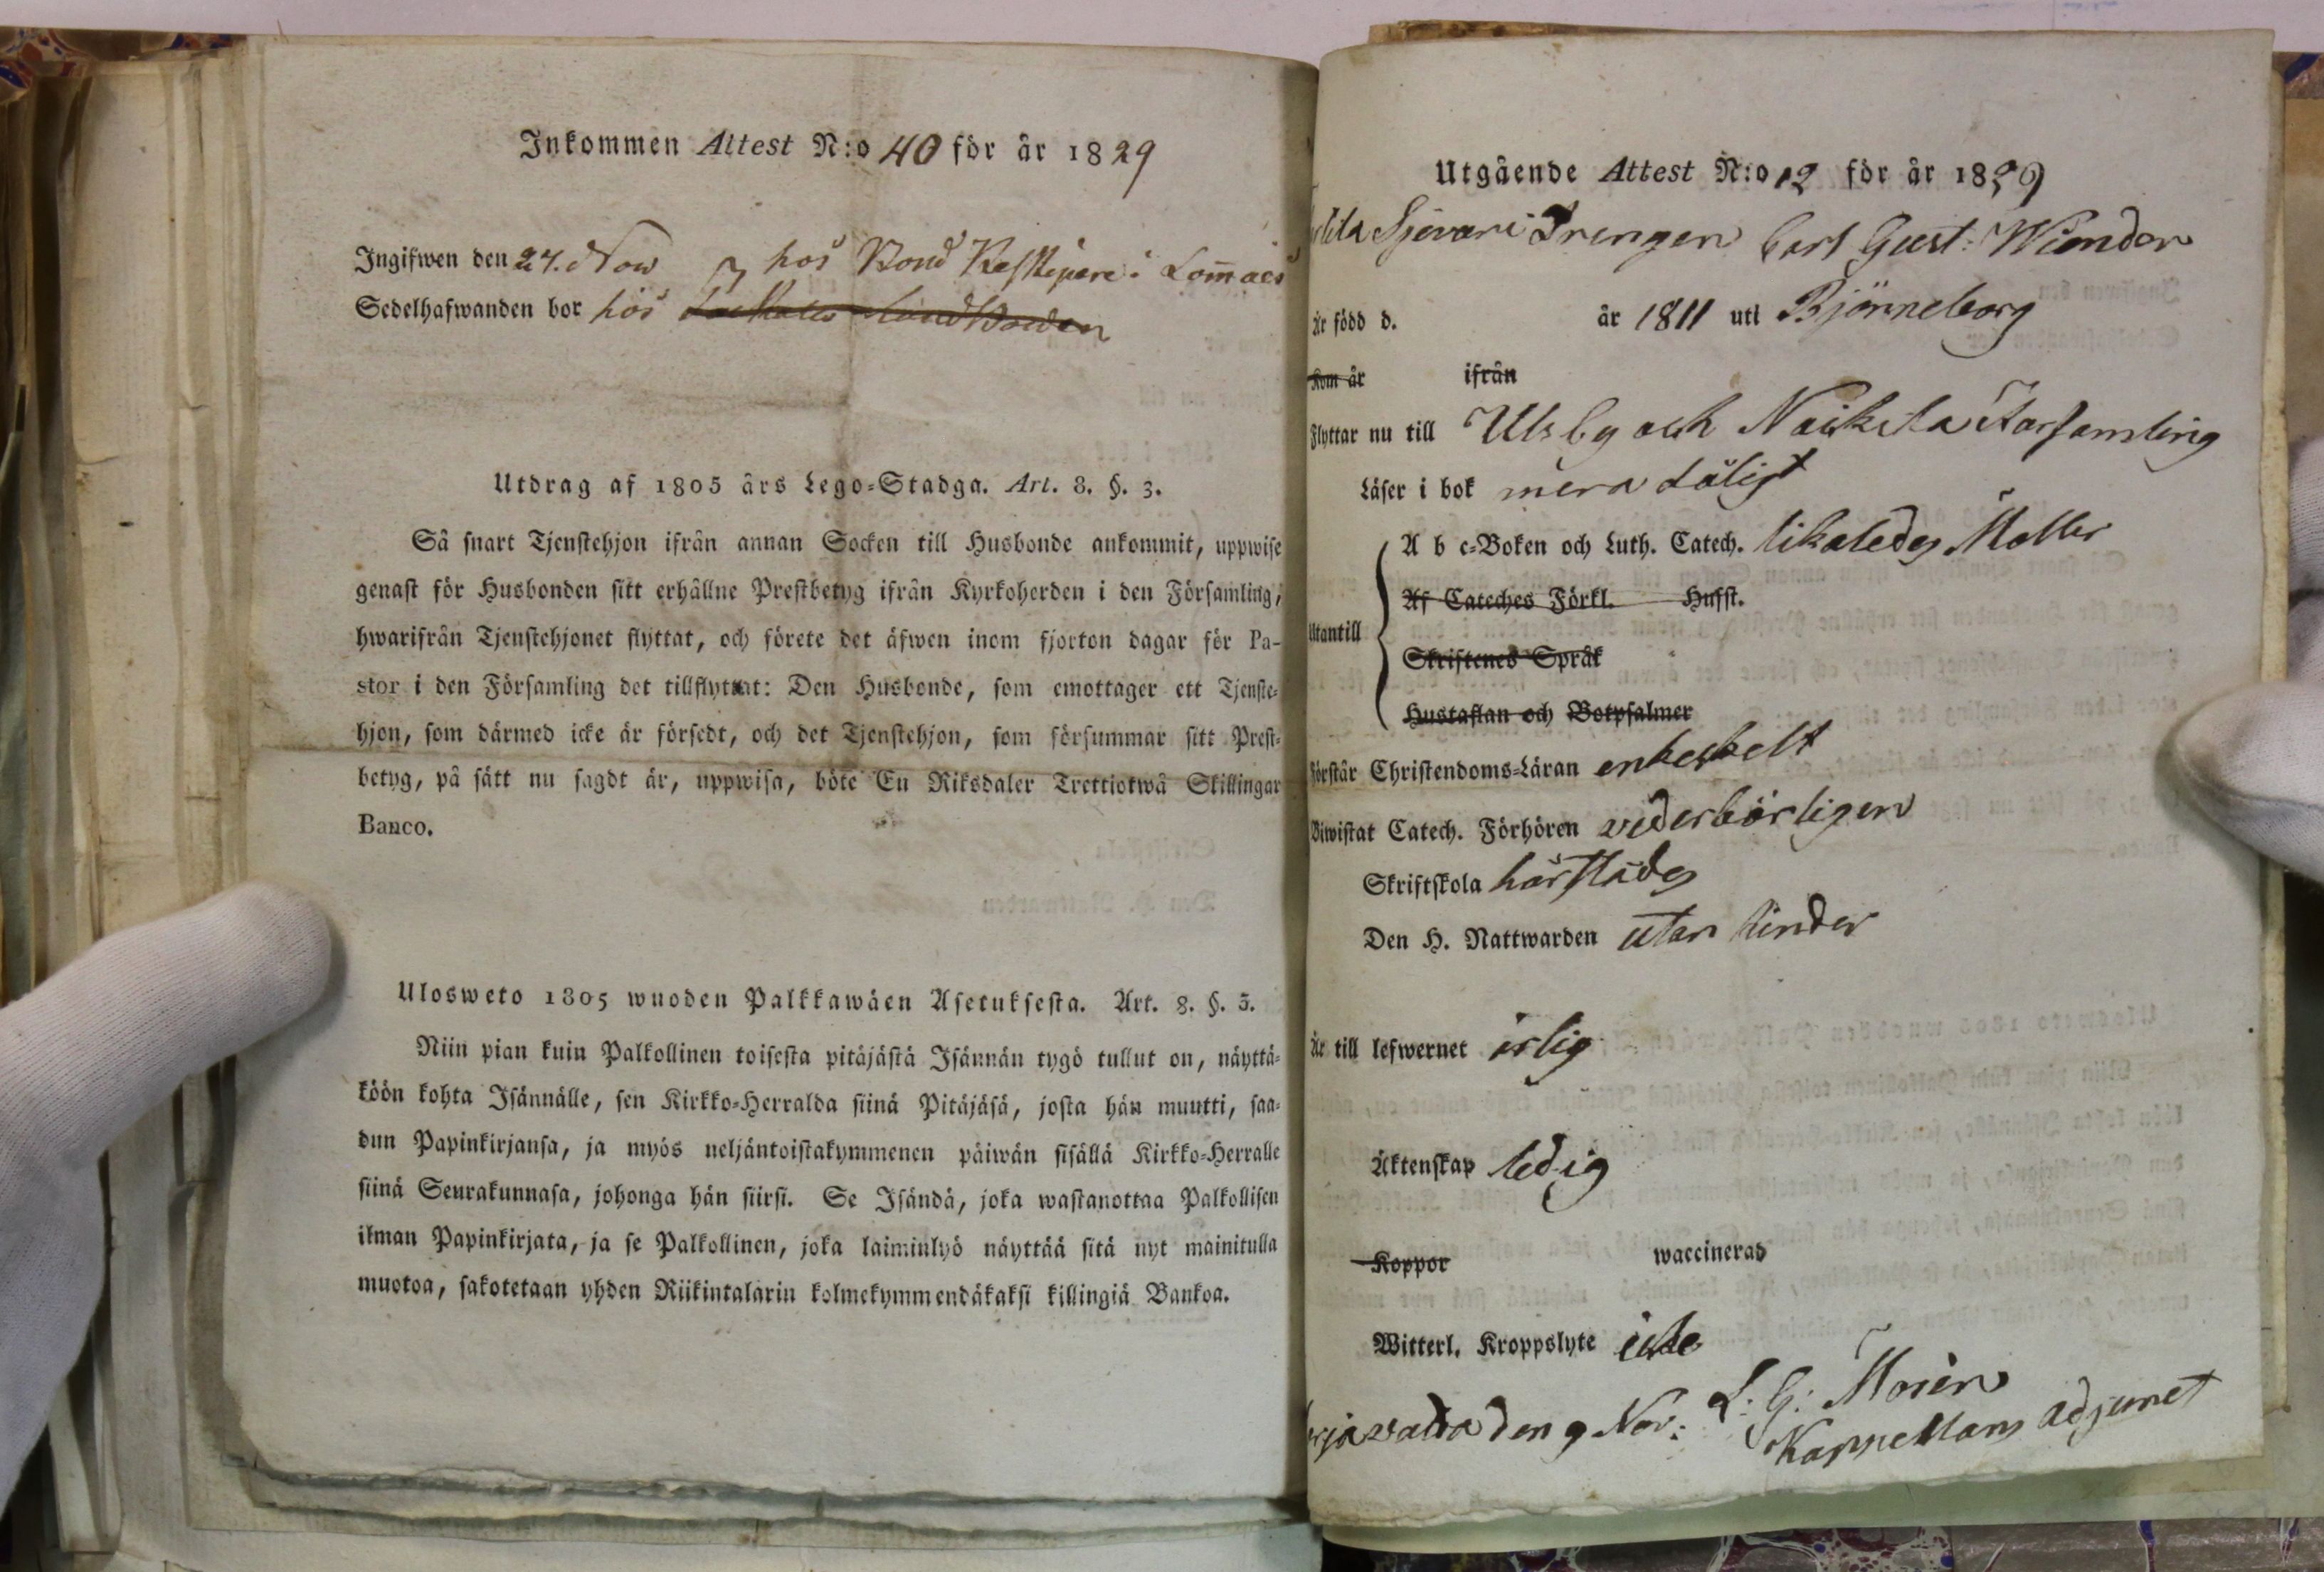 Inkommen Attest N:o 40 för år 1829
Ingifwen den 24. Nov hos Bond i Lom̄ais
Sedelhafwanden bor hos
Utdrag af 1805 års Lego-Stadga. Art. 8. §. 3.
Så snart Tjenstehjon ifrån annan Socken till Husbonde ankommit, uppwise
genast för Husbonden sitt erhållne Prestbetyg ifrån Kyrkoherden i den Församling,
hwarifrån Tjenstehjonet flyttat, och förete det äfwen inom fjorton dagar för Pa-
stor i den Församling det tillflyttat: Den Husbonde, som emottager ett Tjenste-
hjon, som därmed icke är försedt, och det Tjenstehjon, som försummar sitt Prest-
betyg, på sätt nu sagdt är, uppwisa, böte En Riksdaler Trettiotwå Skillingar
Banco.
Ulosweto 1805 wuoden Palkkawäen Asetuksesta. Art. 8. §. 3.
Niin pian kuin Palkollinen toisesta pitäjästä Isännän tygö tullut on, näyttä-
köön kohta Isännälle, sen Kirkko-Herralda siinä Pitäjäsä, josta hän muutti, saa-
dun Papinkirjansa, ja myös neljäntoistakymmenen päiwän sisällä Kirkko-Herralle
siinä Seurakunnasa, johonga hän siirsi. Se Isändä, joka wastanottaa Palkollisen
ilman Papinkirjata, ja se Palkollinen, joka laiminlyö näyttää sitä nyt mainitulla
muotoa, sakotetaan yhden Riikintalarin kolmekymmendäkaksi killingiä Bankoa.
Utgående Attest N:o 12 för år 1829
Drengen Carl Gust: Wiender
Är född d. år 1811 uti Björneborg
Kom år ifrån
Flyttar nu till Ulsby och Församling
Läser i bok mera dåligt
A b c-Boken och Luth. Catech. likaledes
Af Cateches Förkl. Hufst.
Utantill
Skriftenes Språk
Hustaflan och Botpsalmer
Förstår Christendoms-Läran enkelt
Biwistat Catech. Förhören vederbörligen
Skriftskola härstädes
Den H. Nattwarden utan hinder
Är till lefwernet ärlig
Äktenskap ledig
Koppor waccinerad
Witterl. Kroppslyte icke
den 9 Nov: L: G: Morén
Kappellans Adjunct